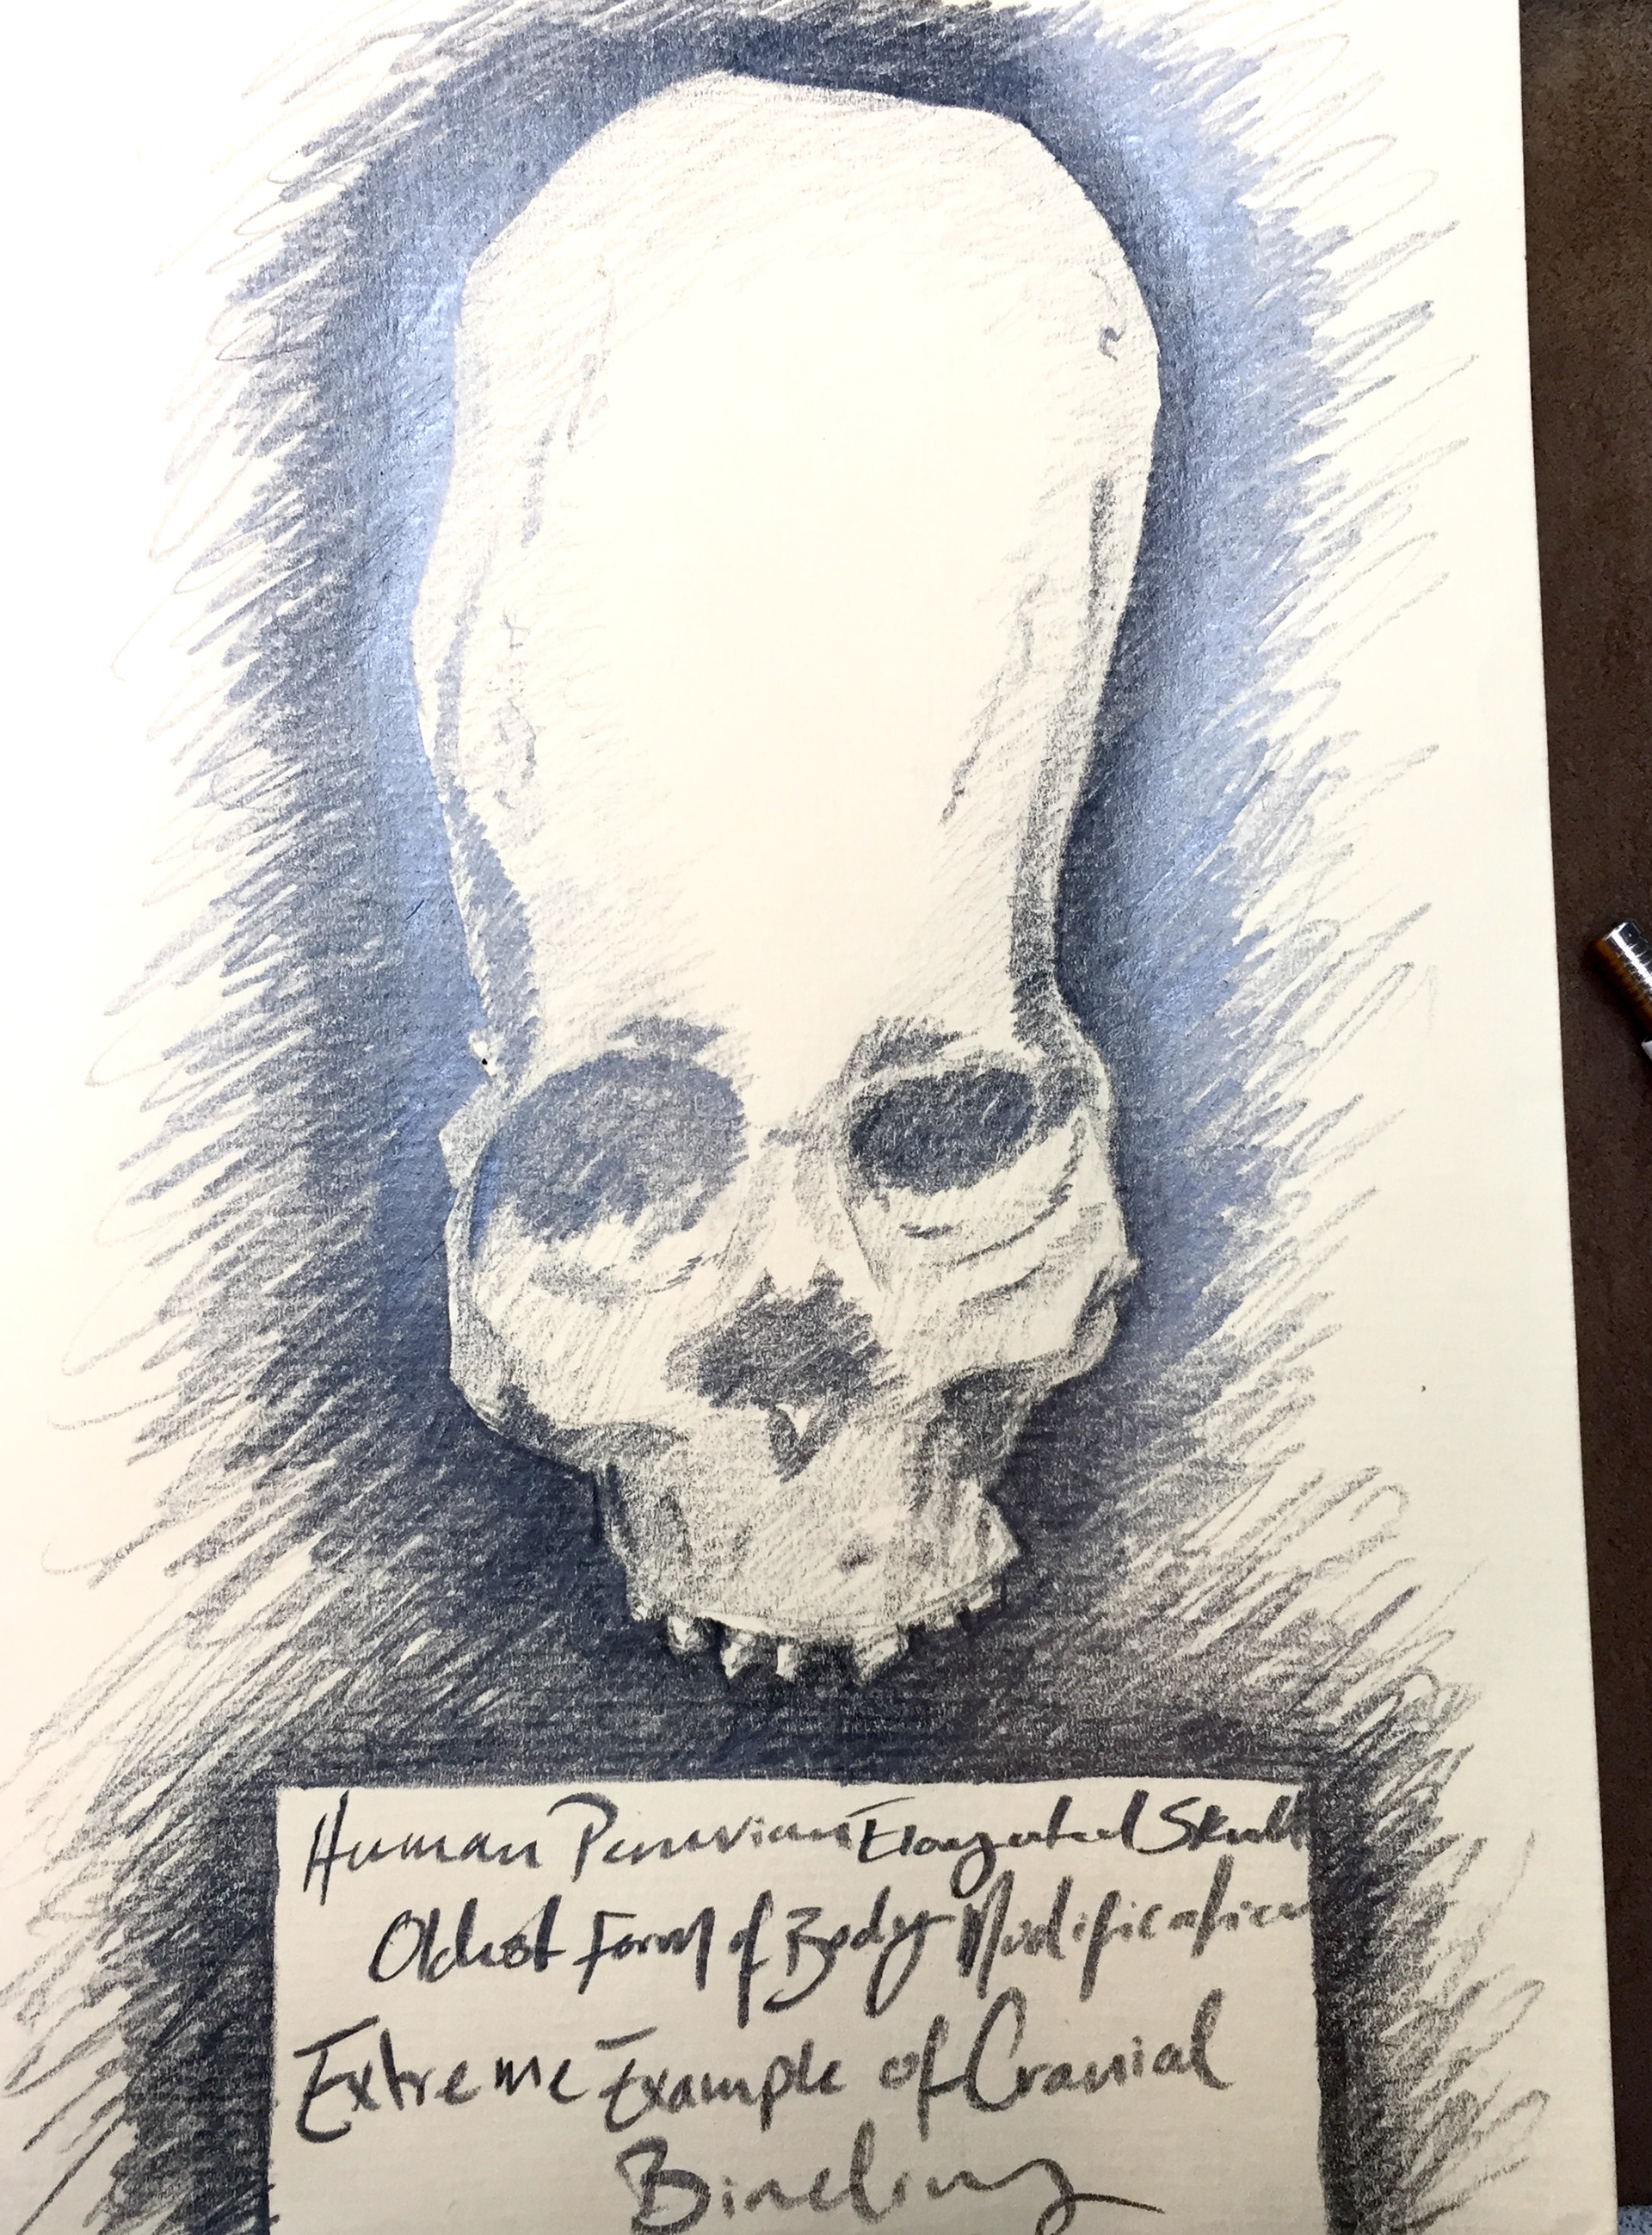 Human Peruvian Elongated Skull
Oldest Form of Body Modification
Extreme Example of Cranial
Binding